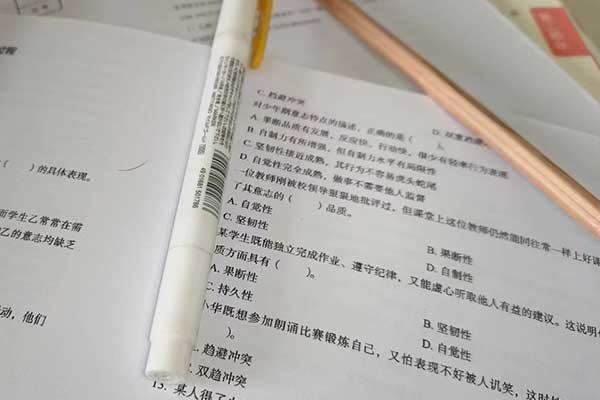 （ ）的具体表现。
而学生乙常常在需
乙的意志均缺乏
动，他们
C. 趋避冲突
D. 双重趋避
对少年期意志特点的描述，正确的是（ ）。
A. 果断品质有发展，反应快、行动快，很少有轻率行为表现
B. 自制力有所增强，但自制力水平有局限性
C. 坚韧性接近成熟，其行为不容易虎头蛇尾
D. 自觉性完全成熟，做事不需要他人监督
一位教师刚被校领导狠狠地批评过，但课堂上这位教师仍然能同往常一样上好课
了其意志的（ ）品质。
A. 自觉性
B. 果断性
C. 坚韧性
D. 自制性
某学生既能独立完成作业、遵守纪律，又能虚心听取他人有益的建议。这说明
质方面具有（ ）。
A. 果断性
B. 坚韧性
C. 持久性
D. 自觉性
小华既想参加朗诵比赛锻炼自己，又怕表现不好被人讥笑，这时
）。
趋避冲突
双趋冲突
13. 某人得了